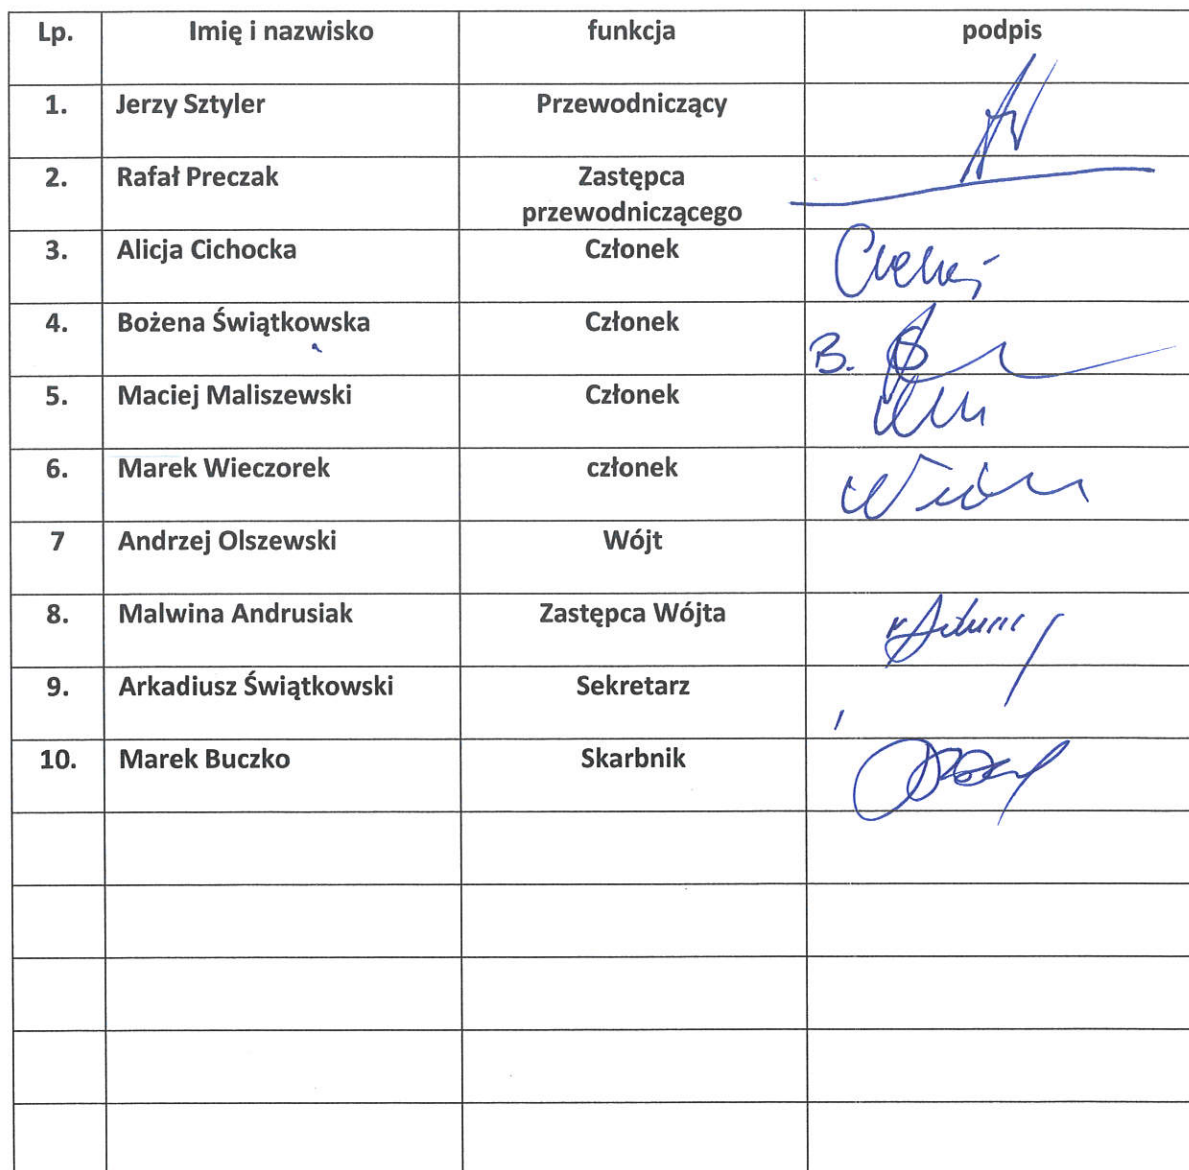 Lp. Imię i nazwisko funkcja podpis
1. Jerzy Sztyler Przewodniczący
2. Rafał Preczak Zastępca
przewodniczącego
3. Alicja Cichocka Członek
4. Bożena Świątkowska Członek
B.
5. Maciej Maliszewski Członek
6. Marek Wieczorek członek
7 Andrzej Olszewski Wójt
8. Malwina Andrusiak Zastępca Wójta
9. Arkadiusz Świątkowski Sekretarz
10. Marek Buczko Skarbnik